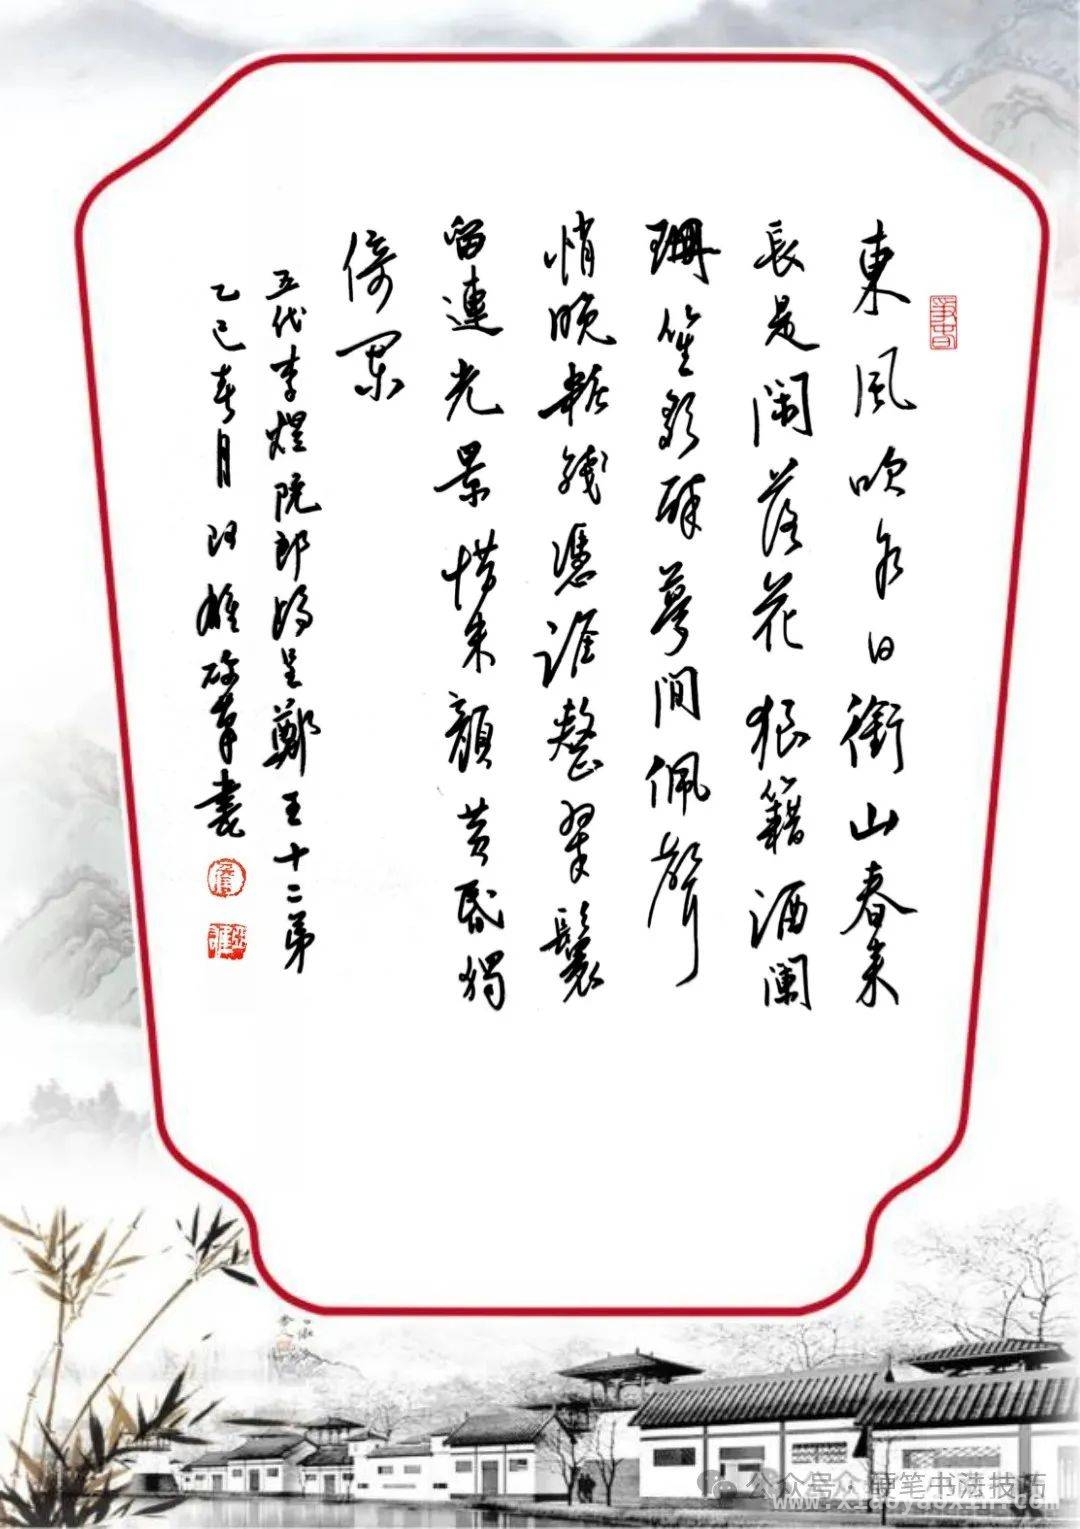 東風吹水日銜山春來
長是閑落花狼籍酒闌
珊笙歌醉夢間佩聲
悄晚粧殘憑誰整翠鬟
留連光景惜朱顏黃昏獨
倚闌
五代李煜阮郎歸呈鄭王十二弟
乙巳春月雄硬筆書
公众号 硬笔书法技巧